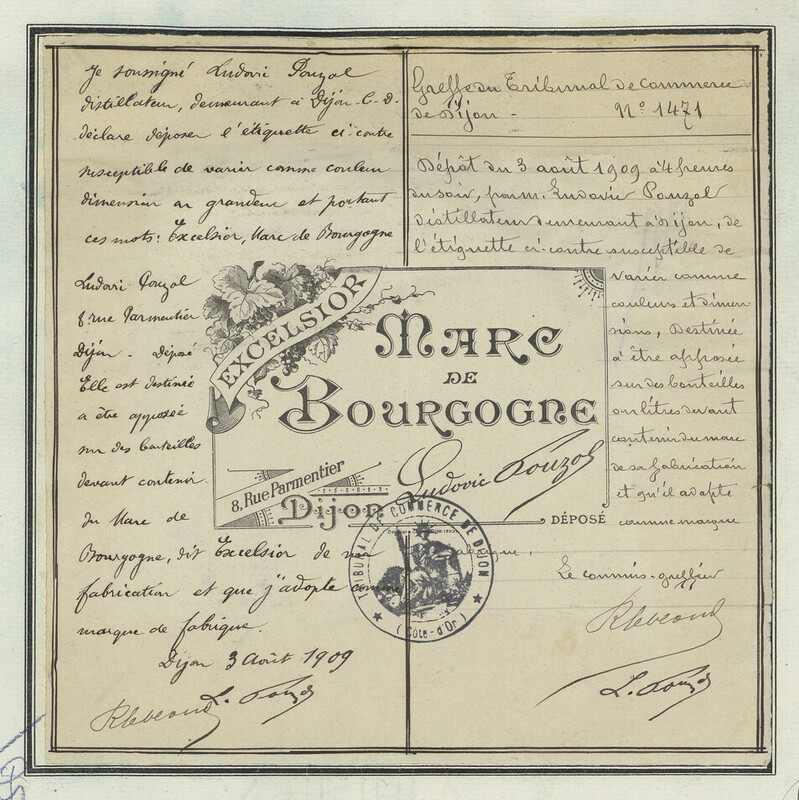 Je soussigné Ludovic Pouzol
distillateur, demeurant à Dijon C-D.
déclare déposer l'étiquette ci-contre
susceptible de varier comme couleur
dimension ou grandeur et portant
ces mots: Excelsior, Marc de Bourgogne
Ludovic Pouzol
8 rue Parmentier
Dijon - Déposé
Elle est destinée
a être apposée
sur des bouteilles
devant contenir
du Marc de
Bourgogne, dit Excelsior de ma
fabrication et que j'adopte comme
marque de fabrique.
Dijon 3 Août 1909
L. Pouzol
Greffe du Tribunal de Commerce
de Dijon - N° 1471
Dépôt du 3 août 1909 à 4 heures
du soir, par m. Ludovic Pouzol
distillateur demeurant à Dijon, de
l'étiquette ci-contre susceptible de
varier comme
couleurs et dimen-
sions, destinée
à être apposée
sur des bouteilles
ou litres devant
contenir du marc
de sa fabrication
et qu'il adopte
comme marque
fabrique.
Le commis-greffier
L. Pouzol
EXCELSIOR
MARC
DE
BOURGOGNE
Ludovic Pouzol
8. Rue Parmentier
Dijon
DÉPOSÉ
TRIBUNAL DE COMMERCE DE DIJON
(Côte-d'Or)